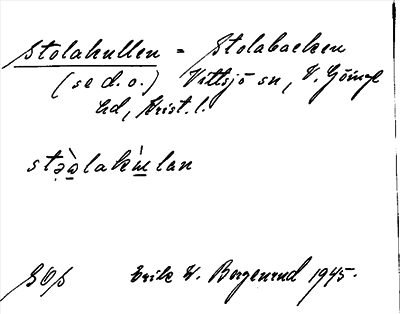 Stolakullen = Stolabacken
(se d. o.) Vittsjö sn, V. Göinge
hd, Krist. l.
stə̀o̲lakɯ̀lan
SOp Erik W. Bergenrud 1945.